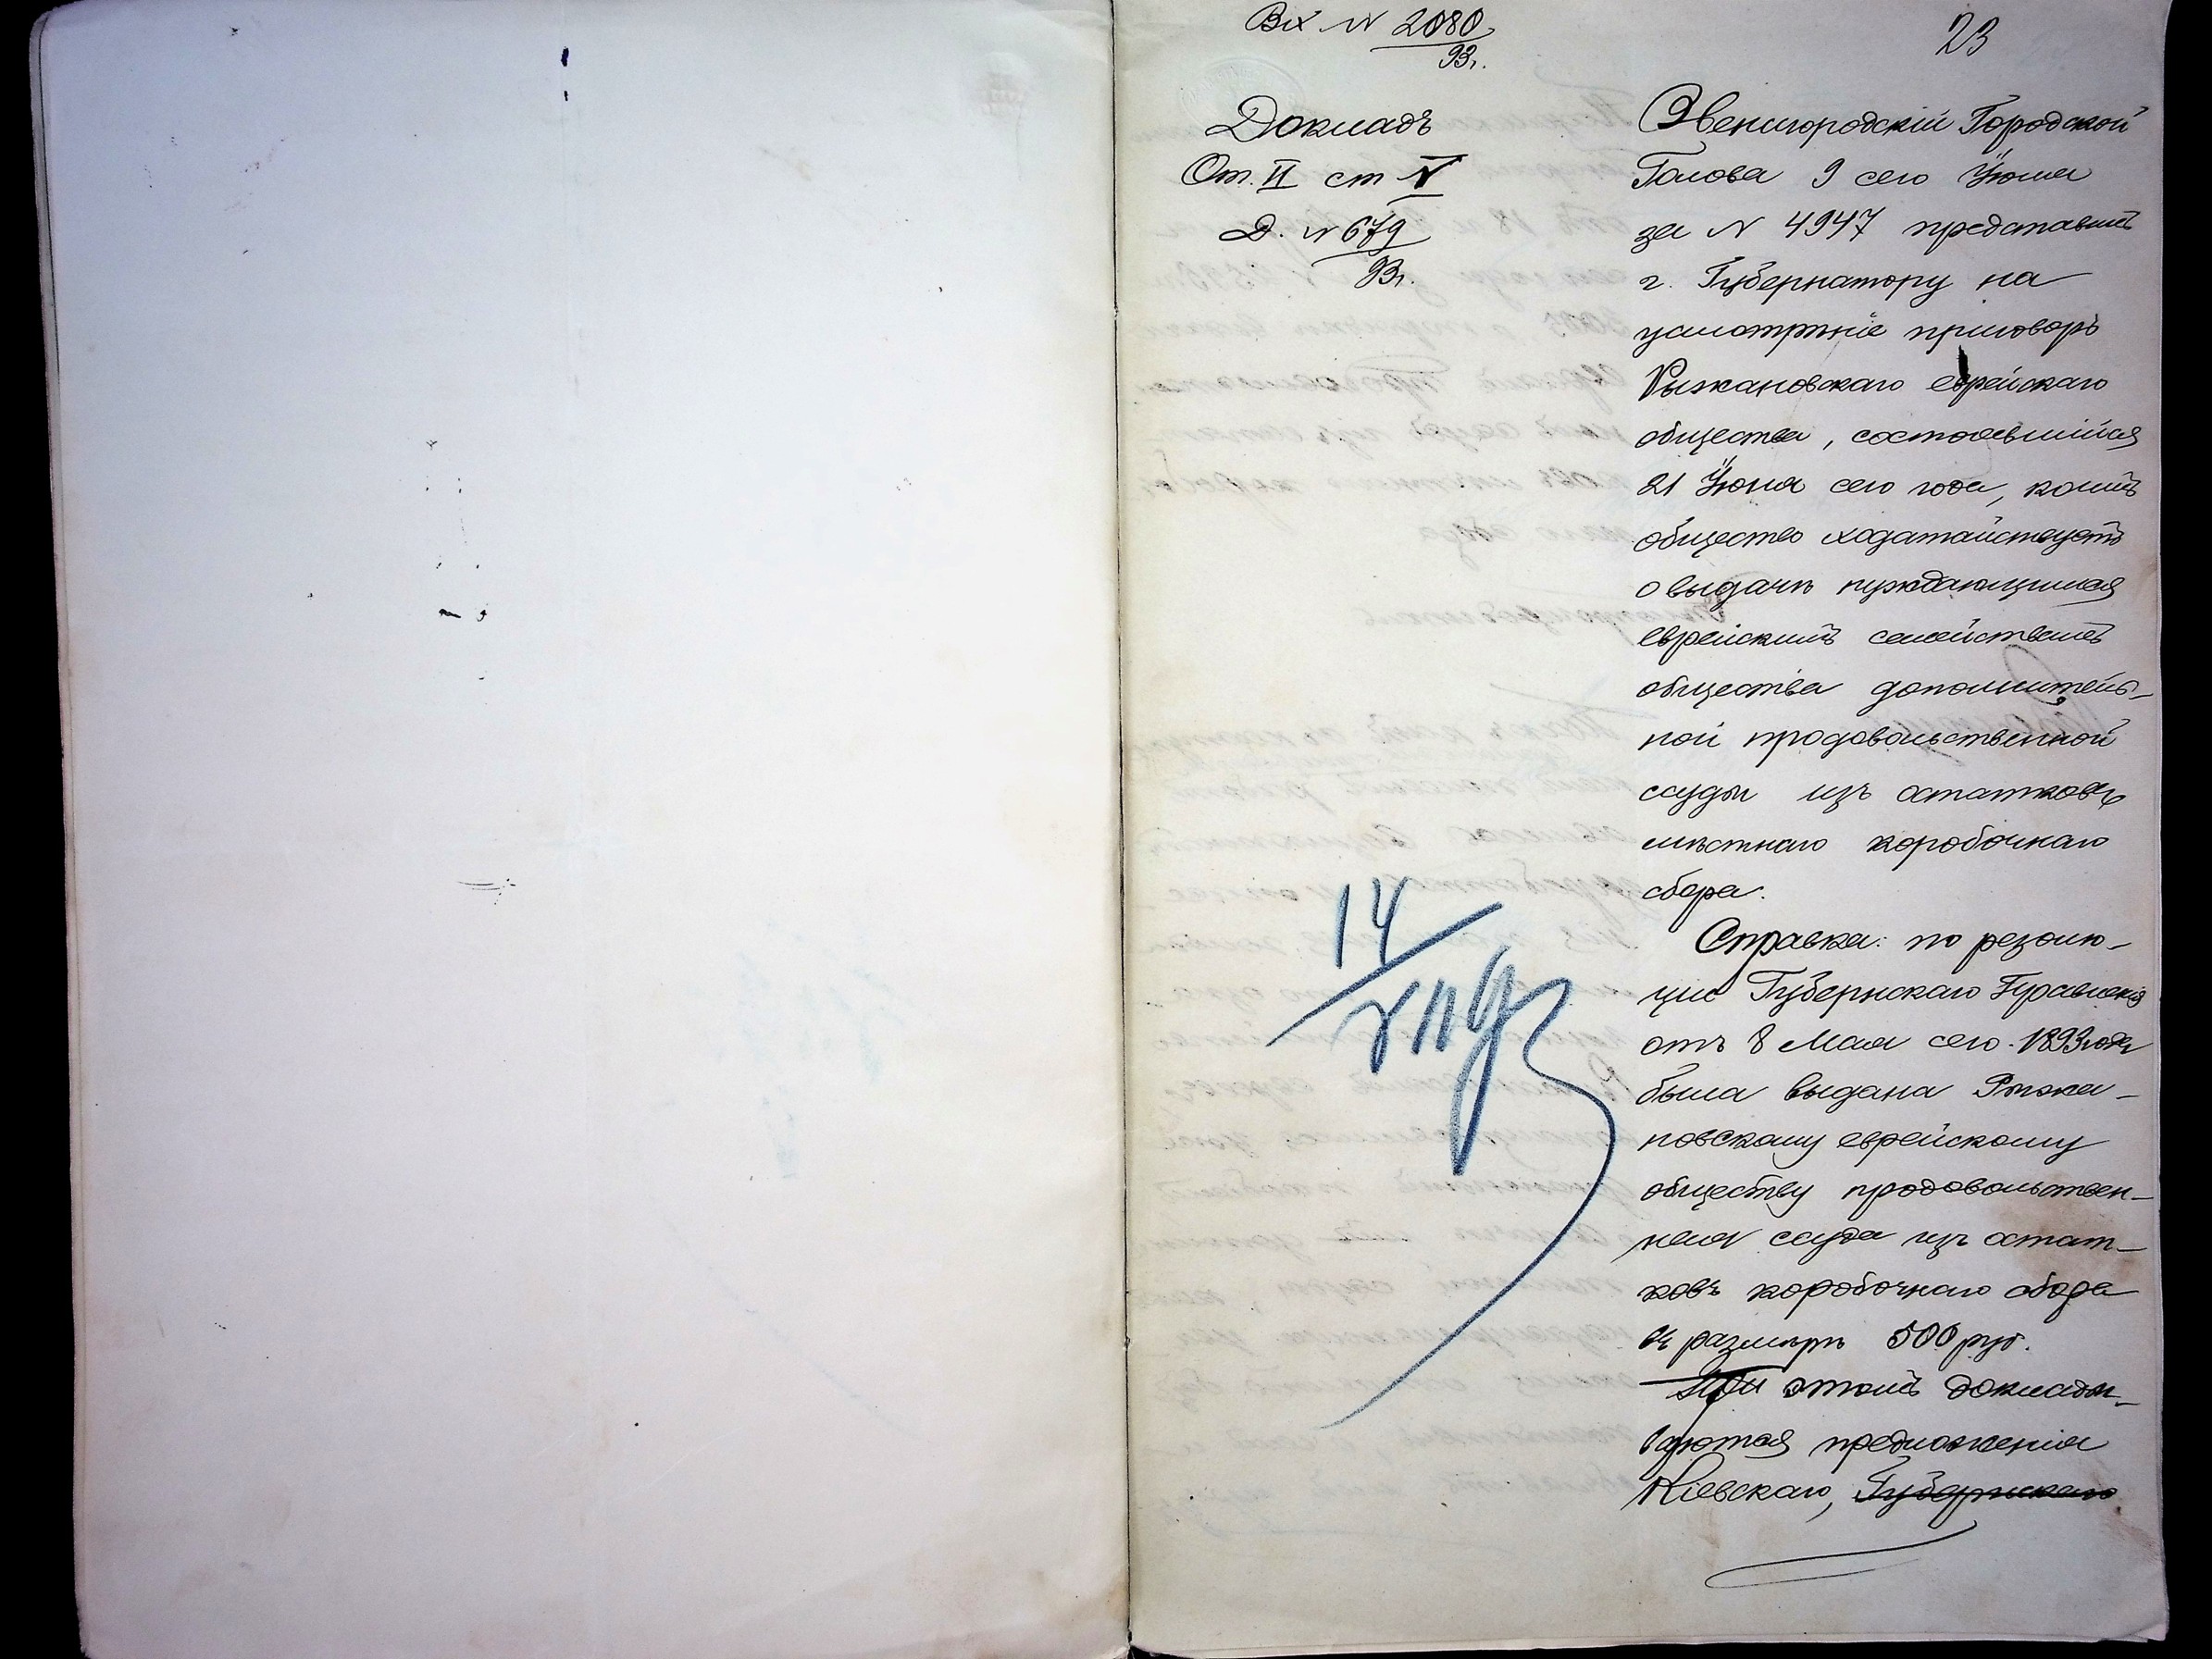 Вх № 2080
93г.
23
Докладъ
От. II ст V
Д. № 679
93г.
Звенигородскій Городской
Голова 9 сего Іюля
за № 4947 представилъ
г. Губернатору на
усмотрѣніе приговоръ
Рыжановскаго еврейскаго
общества, состоявшійся
21 Іюня сего года, коимъ
общество ходатайствуетъ
о выдачѣ нуждающимся
еврейскимъ семействамъ
общества дополнитель-
ной продовольственной
ссуды изъ остатковъ
мѣстнаго коробочнаго
сбора.
Справка: по резолю-
ціи Губернскаго Правленія
отъ 8 Мая сего 1893 года
была выдана Рыжа-
новскому еврейскому
обществу продовольствен-
ная ссуда изъ остат-
ковъ коробочнаго сбора
въ размѣрѣ 500 руб.
При этомъ доклады-
ваются предложенія
Кіевскаго, Губернскаго
14